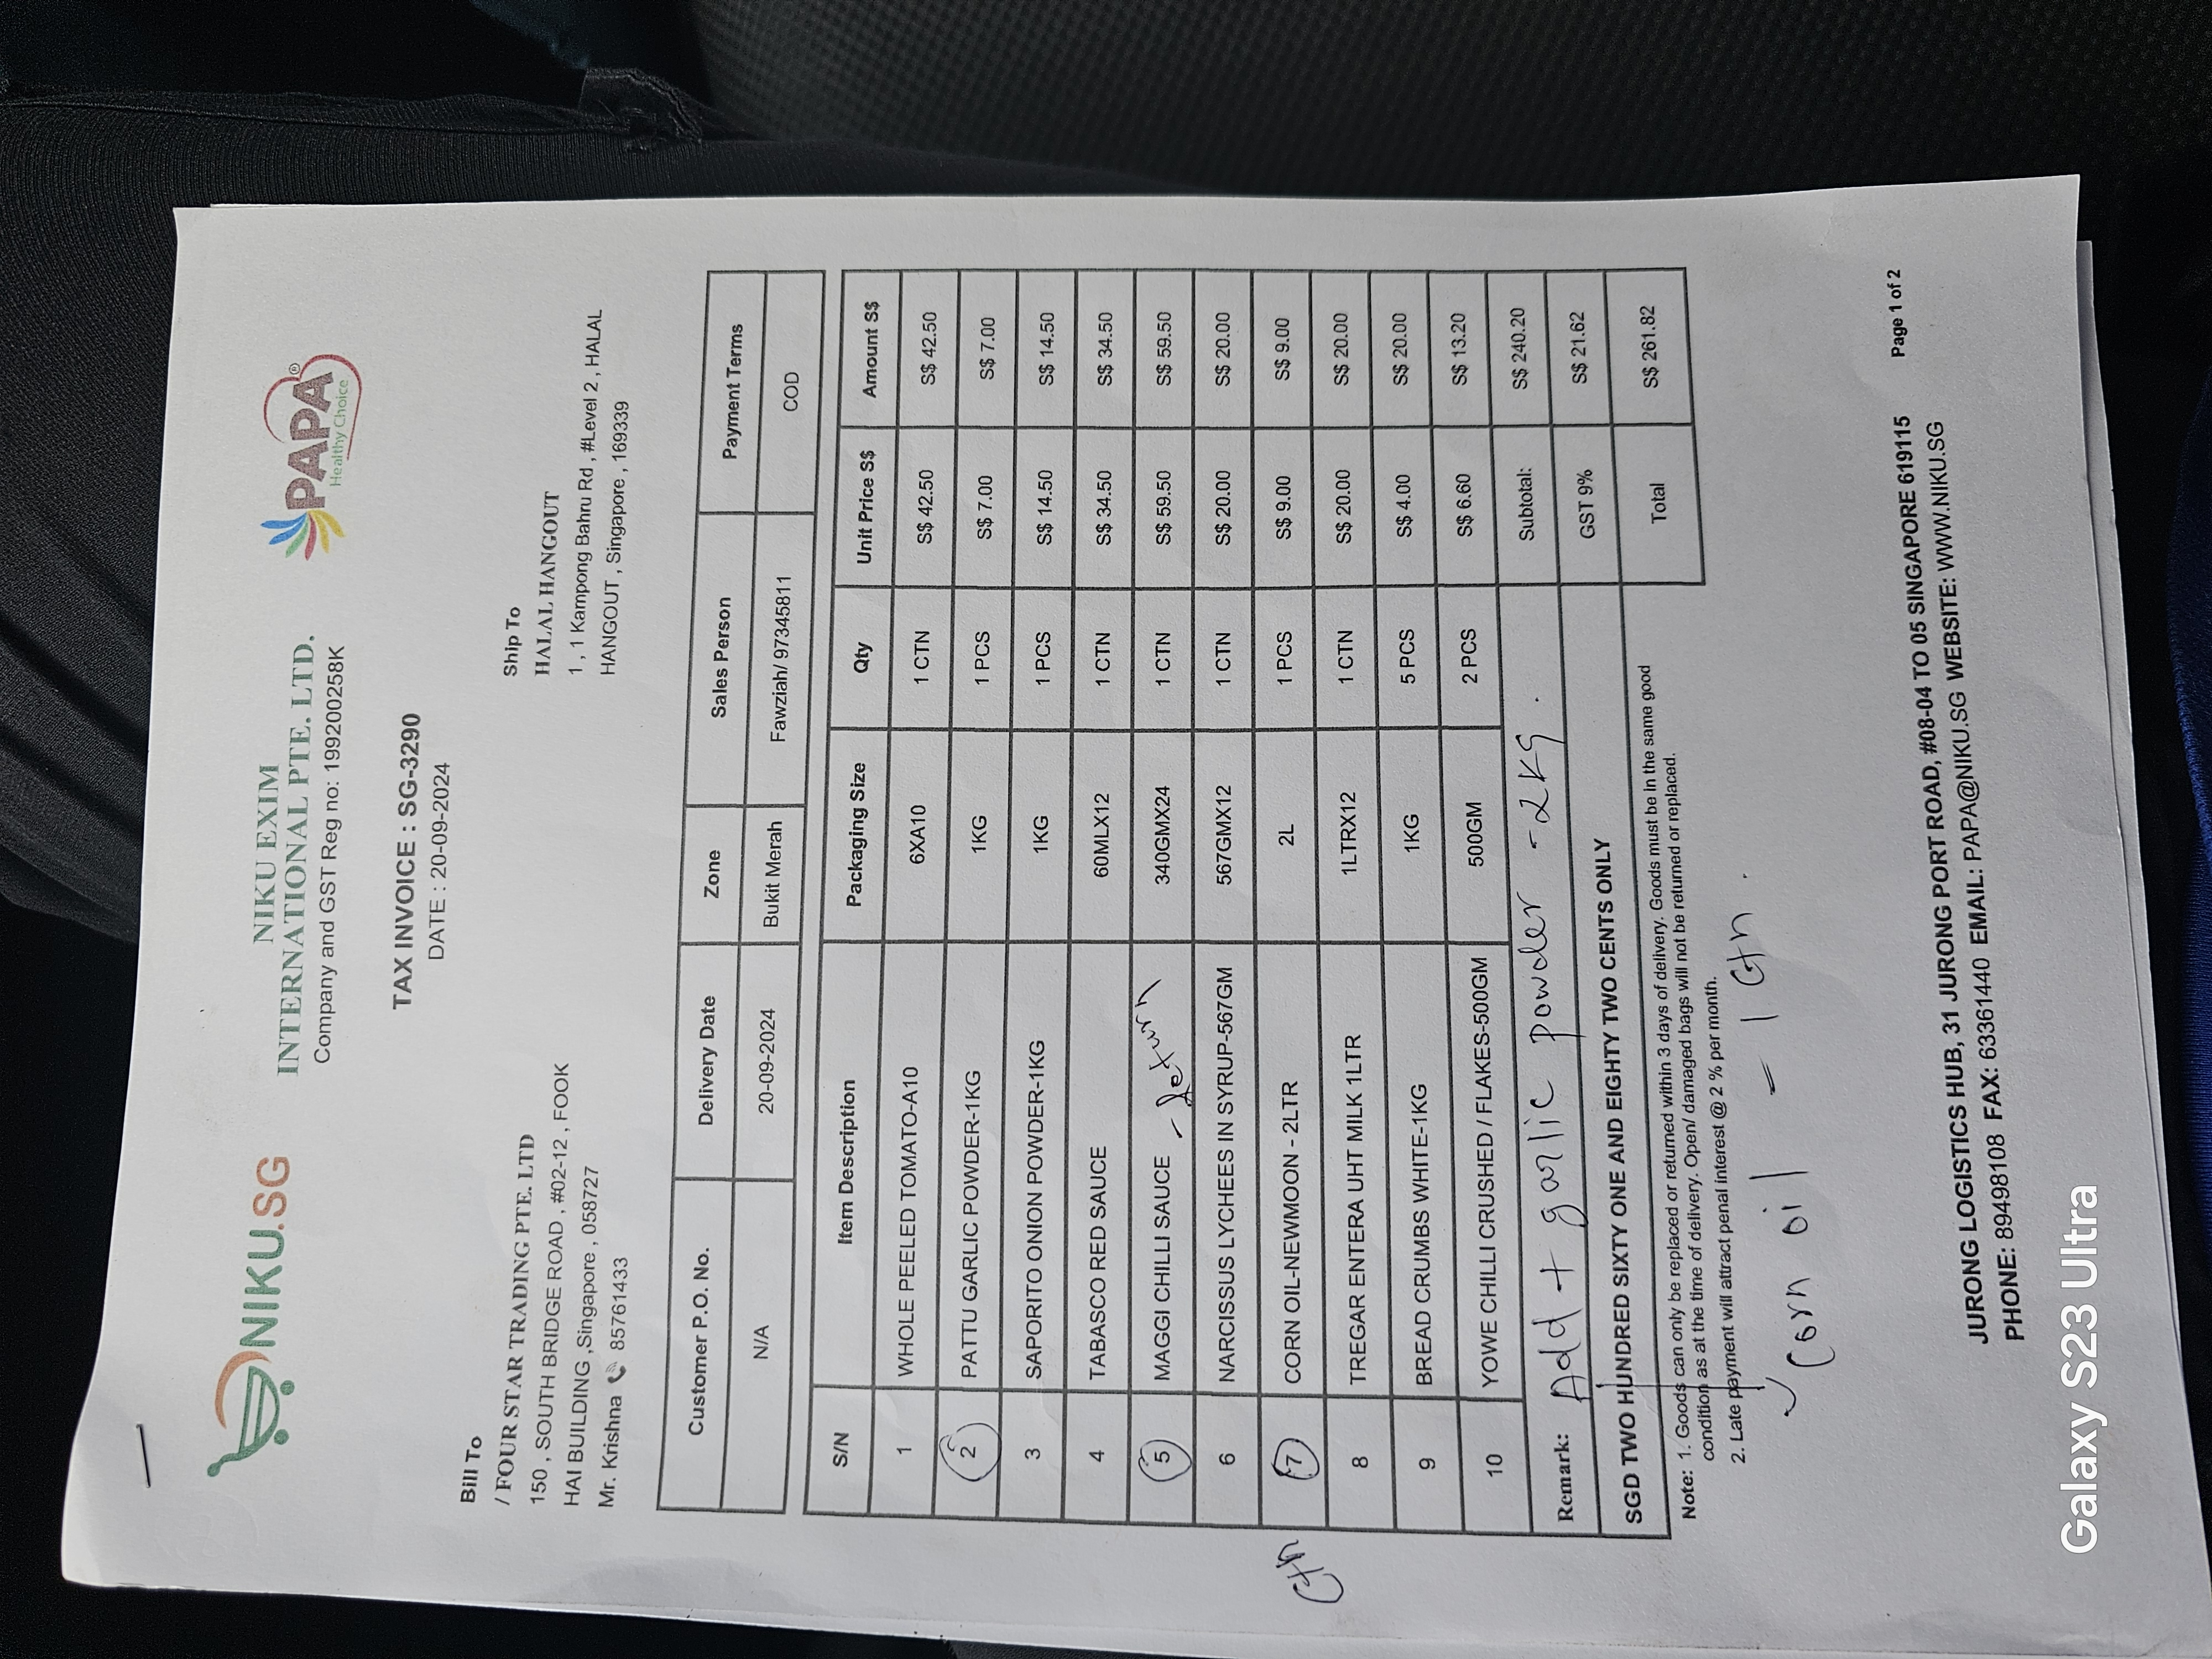 NIKU.SG
NIKU EXIM
INTERNATIONAL PTE. LTD.
Company and GST Reg no: 199200258K
PAPA®
Healthy Choice
TAX INVOICE : SG-3290
DATE : 20-09-2024
Bill To
/ FOUR STAR TRADING PTE. LTD
150 , SOUTH BRIDGE ROAD , #02-12 , FOOK
HAI BUILDING ,Singapore , 058727
Mr. Krishna 85761433
Ship To
HALAL HANGOUT
1 , 1 Kampong Bahru Rd , #Level 2 , HALAL
HANGOUT , Singapore , 169339
Customer P.O. No. Delivery Date Zone Sales Person Payment Terms
N/A 20-09-2024 Bukit Merah Fawziah/ 97345811 COD
S/N Item Description Packaging Size Qty Unit Price S$ Amount S$
1 WHOLE PEELED TOMATO-A10 6XA10 1 CTN S$ 42.50 S$ 42.50
2 PATTU GARLIC POWDER-1KG 1KG 1 PCS S$ 7.00 S$ 7.00
3 SAPORITO ONION POWDER-1KG 1KG 1 PCS S$ 14.50 S$ 14.50
4 TABASCO RED SAUCE 60MLX12 1 CTN S$ 34.50 S$ 34.50
5 MAGGI CHILLI SAUCE - Return 340GMX24 1 CTN S$ 59.50 S$ 59.50
6 NARCISSUS LYCHEES IN SYRUP-567GM 567GMX12 1 CTN S$ 20.00 S$ 20.00
ctn 7 CORN OIL-NEWMOON - 2LTR 2L 1 PCS S$ 9.00 S$ 9.00
8 TREGAR ENTERA UHT MILK 1LTR 1LTRX12 1 CTN S$ 20.00 S$ 20.00
9 BREAD CRUMBS WHITE-1KG 1KG 5 PCS S$ 4.00 S$ 20.00
10 YOWE CHILLI CRUSHED / FLAKES-500GM 500GM 2 PCS S$ 6.60 S$ 13.20
Remark: Add + garlic powder - 2KG. Subtotal: S$ 240.20
GST 9% S$ 21.62
SGD TWO HUNDRED SIXTY ONE AND EIGHTY TWO CENTS ONLY Total S$ 261.82
Note: 1. Goods can only be replaced or returned within 3 days of delivery. Goods must be in the same good
condition as at the time of delivery. Open/ damaged bags will not be returned or replaced.
2. Late payment will attract penal interest @ 2 % per month.
Corn oil - 1 ctn.
Page 1 of 2
JURONG LOGISTICS HUB, 31 JURONG PORT ROAD, #08-04 TO 05 SINGAPORE 619115
PHONE: 89498108 FAX: 63361440 EMAIL: PAPA@NIKU.SG WEBSITE: WWW.NIKU.SG
Galaxy S23 Ultra